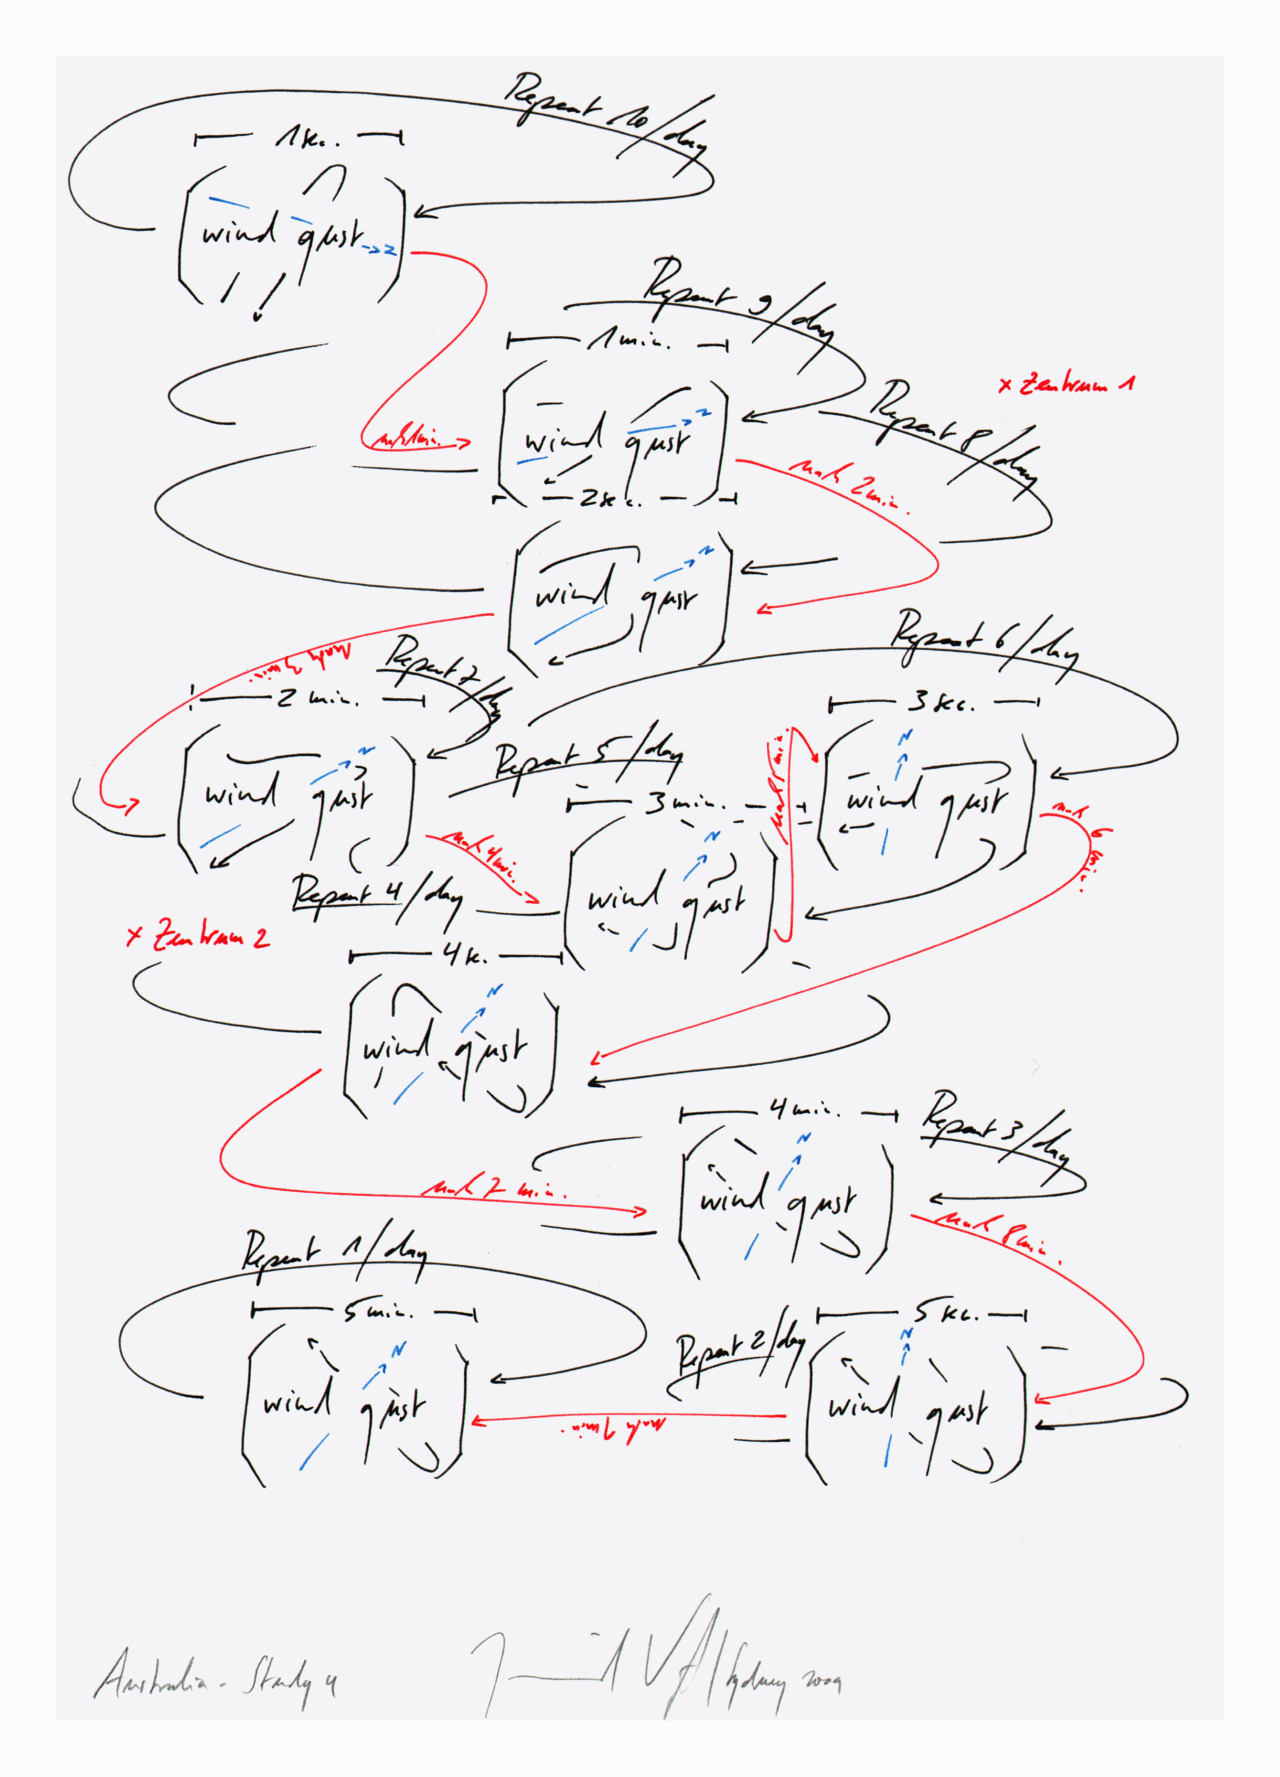 Repeat 10/day
1 sec.
wind gust
N
Repeat 9/day
1 min.
× Zentrum 1
Repeat 8/day
N
wind gust
nach 1 min.
nach 2 min.
2 sec.
N
wind gust
Repeat 6/day
nach 3 min.
Repeat 7/day
2 min.
3 sec.
N
N
Repeat 5/day
nach 5 min.
wind gust
3 min.
wind gust
nach 6 min.
N
nach 4 min.
Repeat 4/day
wind gust
× Zentrum 2
4 sec.
N
wind gust
4 min.
Repeat 3/day
N
nach 7 min.
wind gust
nach 8 min.
Repeat 1/day
5 min.
5 sec.
N
N
Repeat 2/day
wind gust
wind gust
nach 9 min.
Australia - Study 4
/ Sydney 2009